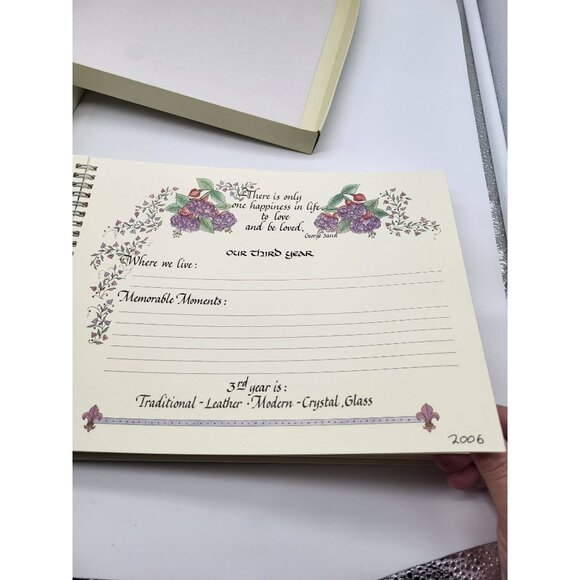 There is only
one happiness in life
to love
and be loved.
George Sand
OUR THIRD YEAR
Where we live:
Memorable Moments:
3rd year is:
Traditional - Leather · Modern - Crystal, Glass
2006